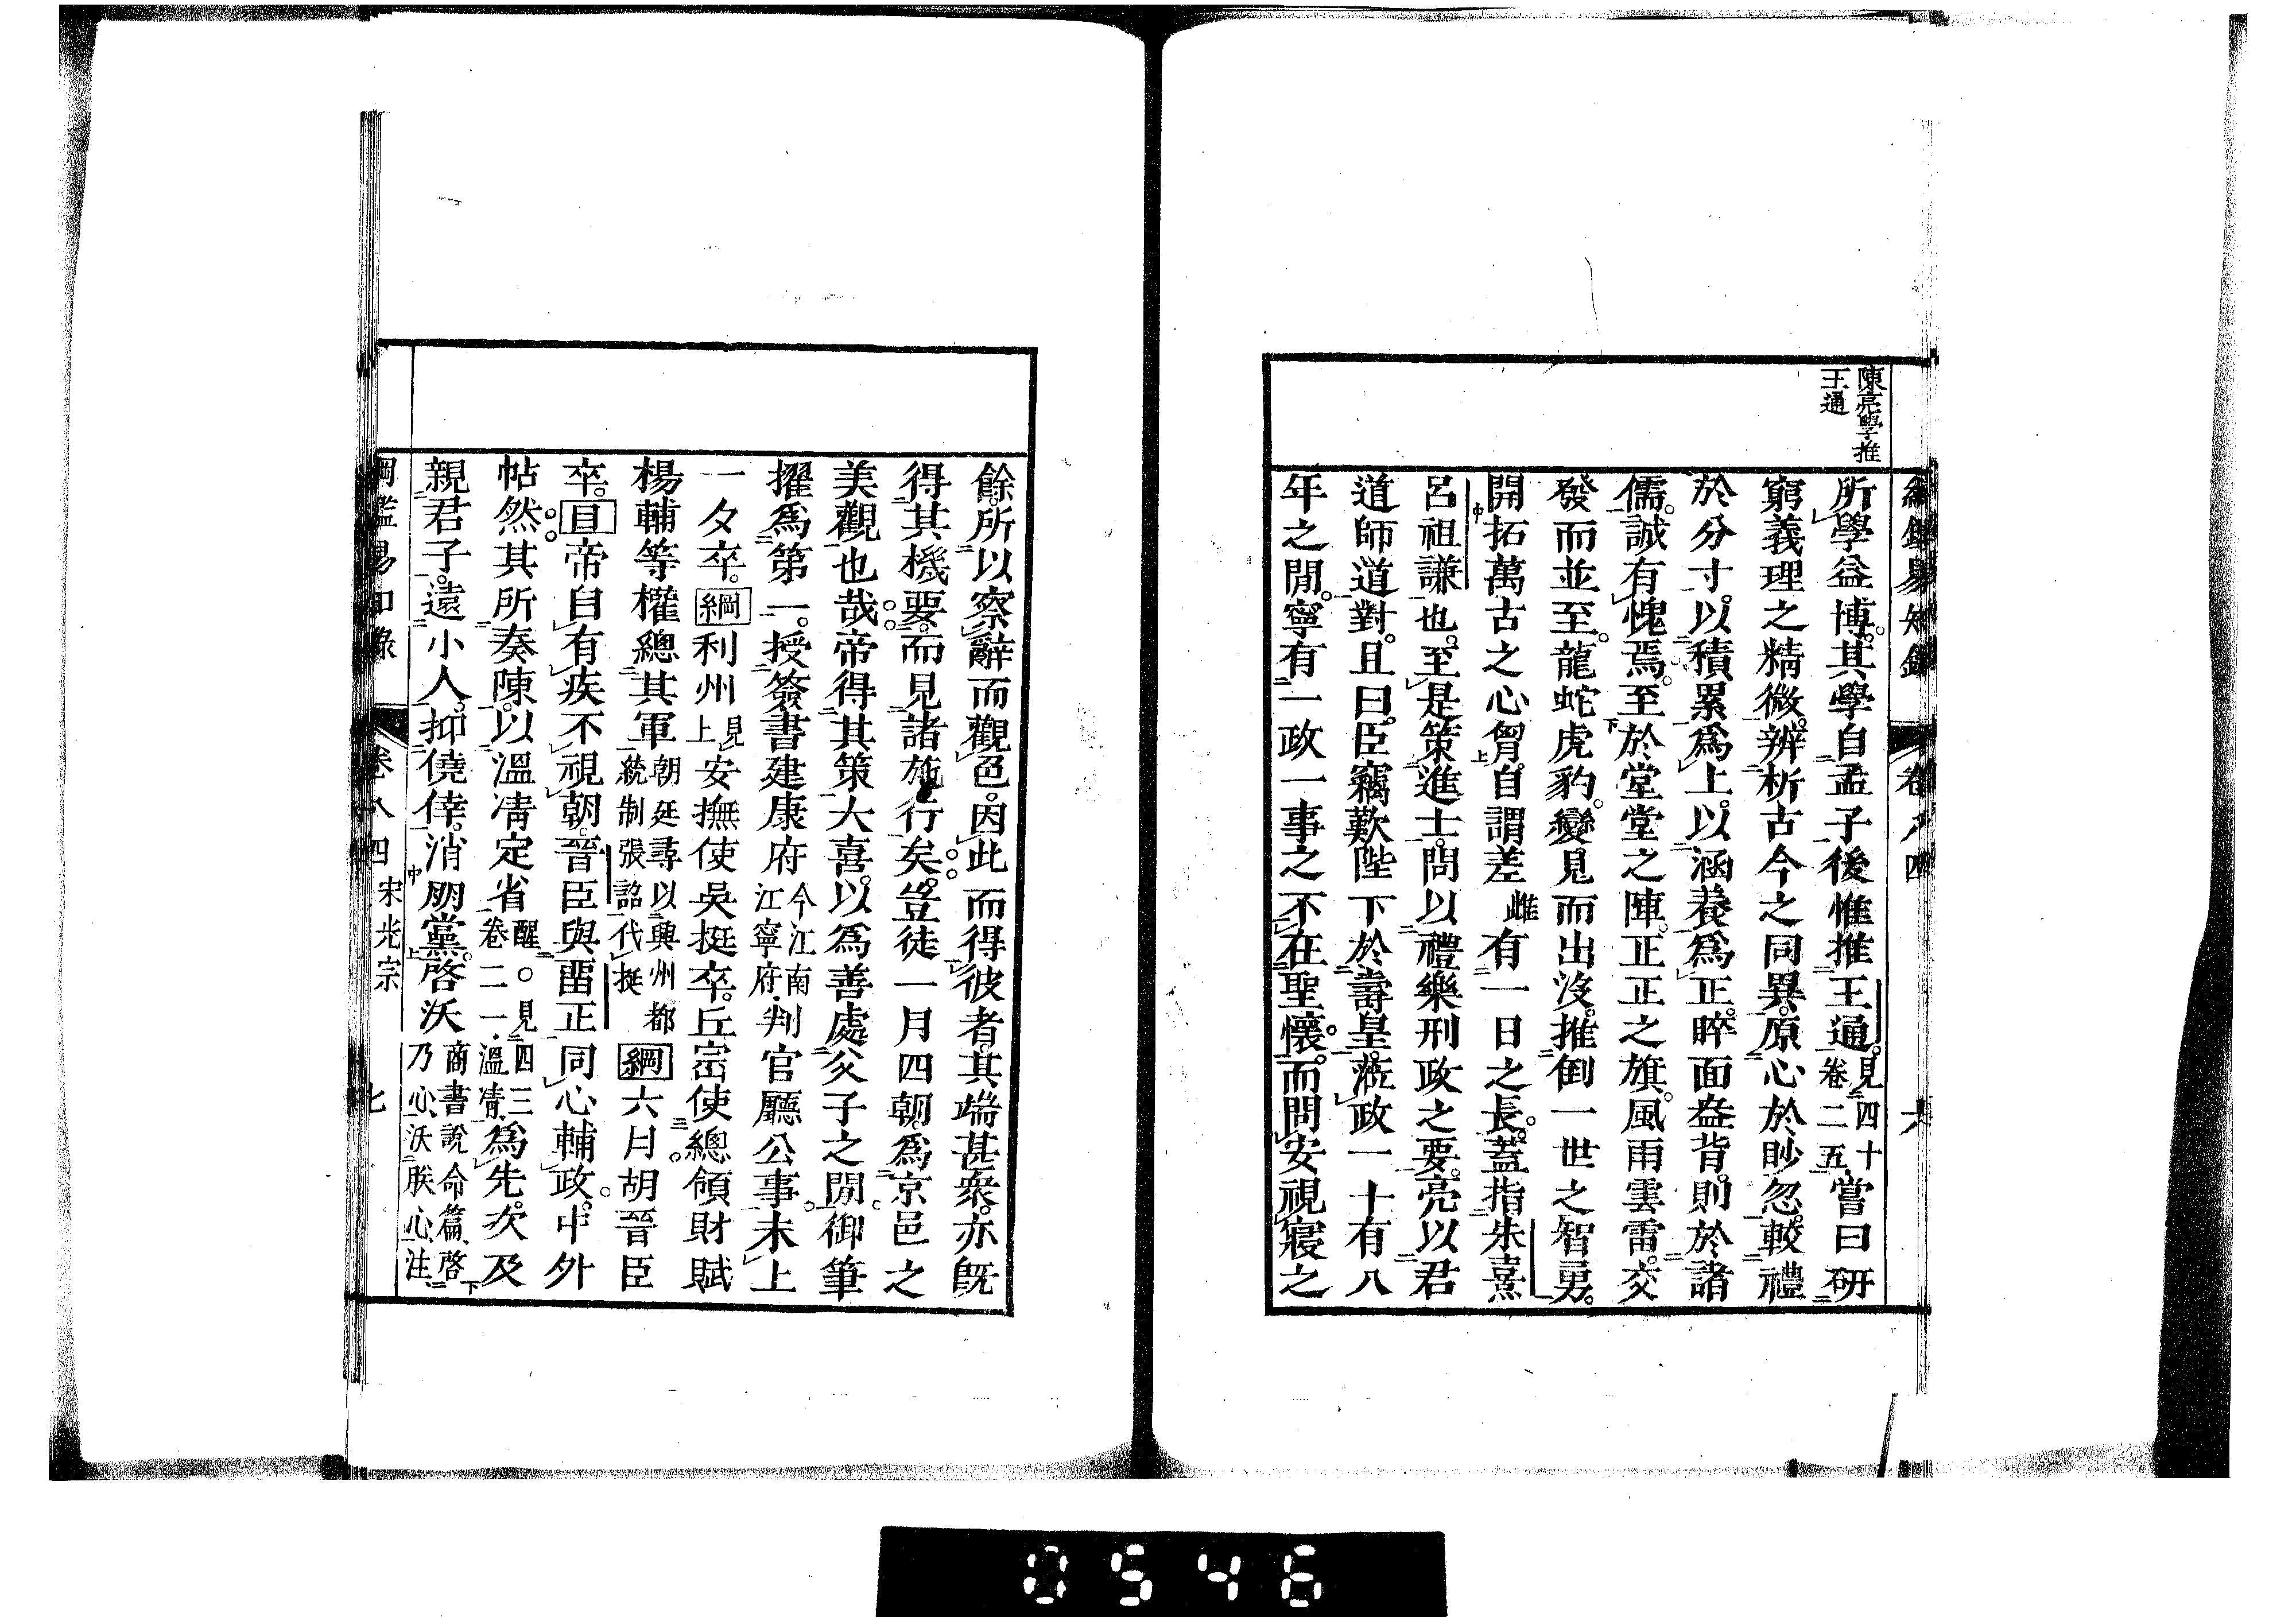 陳亮學推
王通
所學益博。其學自孟子後惟推王通。見四十卷二五嘗曰研
窮義理之精微。辨析古今之同異。原心於眇忽。較禮
於分寸。以積累爲上。以涵養爲正。睟面盎背。則於諸
儒。誠有愧焉。至於堂堂之陣。正正之旗。風雨雲雷。交
發而並至。龍蛇虎豹。變見而出没。推倒一世之智勇。
開拓萬古之心胷。自謂差雌有一日之長。蓋指朱熹
呂祖謙也。至是策進士。問以禮樂刑政之要。亮以君
道師道對。且曰。臣竊歎陛下於壽皇。蒞政一十有八
年之閒。寧有一政一事之不在聖懷。而問安視寢之
餘。所以察辭而觀色。因此而得彼者。其端甚衆。亦旣
得其機要。而見諸施行矣。豈徒一月四朝。爲京邑之
美觀也哉。帝得其策大喜。以爲善處父子之閒。御筆
擢爲第一。授簽書建康府今江南江寧府判官廳公事。未上
一夕卒。綱利州見上安撫使吳挺卒。丘崈使總領財賦
楊輔等權總其軍朝廷尋以興州都統制張詔代挺綱六月胡晉臣
卒。目帝自有疾不視朝。晉臣與畱正同心輔政。中外
帖然。其所奏陳。以溫凊定省醒。見四三卷二一溫凊爲先。次及
親君子。遠小人。抑僥倖。消朋黨。啓沃商書說命篇啓乃心沃朕心注
綱鑑易知錄 卷八四 宋光宗 七